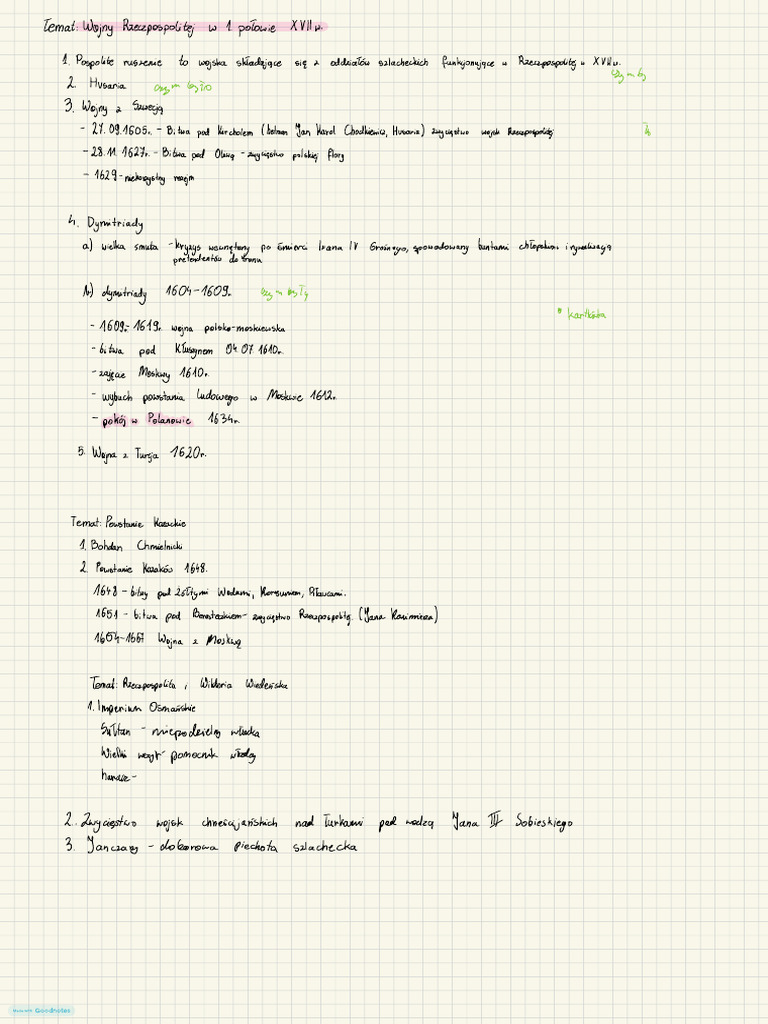 Temat: Wojny Rzeczpospolitej w 1 połowie XVII w.
1. Pospolite ruszenie to wojska składające się z oddziałów szlacheckich funkcjonujące w Rzeczpospolitej w XVII w.
czym by
2. Husaria czym było
3. Wojny z Szwecją
- 27.09.1605r. - Bitwa pod Kircholem (hetman Jan Karol Chodkiewicz, Husaria) zwycięstwo wojsk Rzeczpospolitej
- 28.11.1627r. - Bitwa pod Oliwą - zwycięstwo polskiej floty
- 1629 - niekorzystny rozejm
4. Dymitriady
a) wielka smuta - kryzys wewnętrzny po śmierci Iwana IV Groźnego, spowodowany buntami chłopskimi i rywalizacją
pretendentów do tronu
b) dymitriady 1604-1609r. czym były
• kartkówka
- 1609r.-1619r. wojna polsko-moskiewska
- bitwa pod Kłuszynem 04.07.1610r.
- zajęcie Moskwy 1610r.
- wybuch powstania ludowego w Moskwie 1612r.
- pokój w Polanowie 1634r.
5. Wojna z Turcja 1620r.
Temat: Powstanie Kozackie
1. Bohdan Chmielnicki
2. Powstanie Kozaków 1648.
1648 - bitwy pod Żółtymi Wodami, Korsuniem, Piławcami.
1651 - bitwa pod Beresteczkiem - zwycięstwo Rzeczpospolitej (Jana Kazimierza)
1654-1667 Wojna z Moskwą
Temat: Rzeczpospolita i Wiktoria Wiedeńska
1. Imperium Osmańskie
Sułtan - niepodzielny władca
Wielki wezyr - pomocnik władcy
haracz -
2. Zwycięstwo wojsk chrześcijańskich nad Turkami pod wodzą Jana III Sobieskiego
3. Janczarzy - doborowa piechota szlachecka
Goodnotes